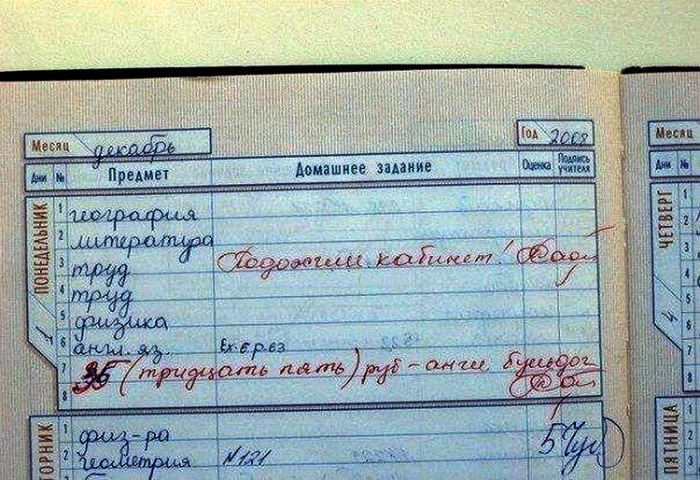 Месяц декабрь Год 2008 Месяц
Дни № Предмет Домашнее задание Оценка Подпись учителя Дни №
ПОНЕДЕЛЬНИК 1 ЧЕТВЕРГ 4
1 география 1
2 литература 2
3 труд Подожгли кабинет! 3
4 труд 4
5 физика
6 англ. яз. Ex. 6 p. 63
7 35 (тридцать пять) руб - англ. бульдог
8
ТОРНИК ПЯТНИЦА
1 физ-ра 5
2 геометрия №121 2
3